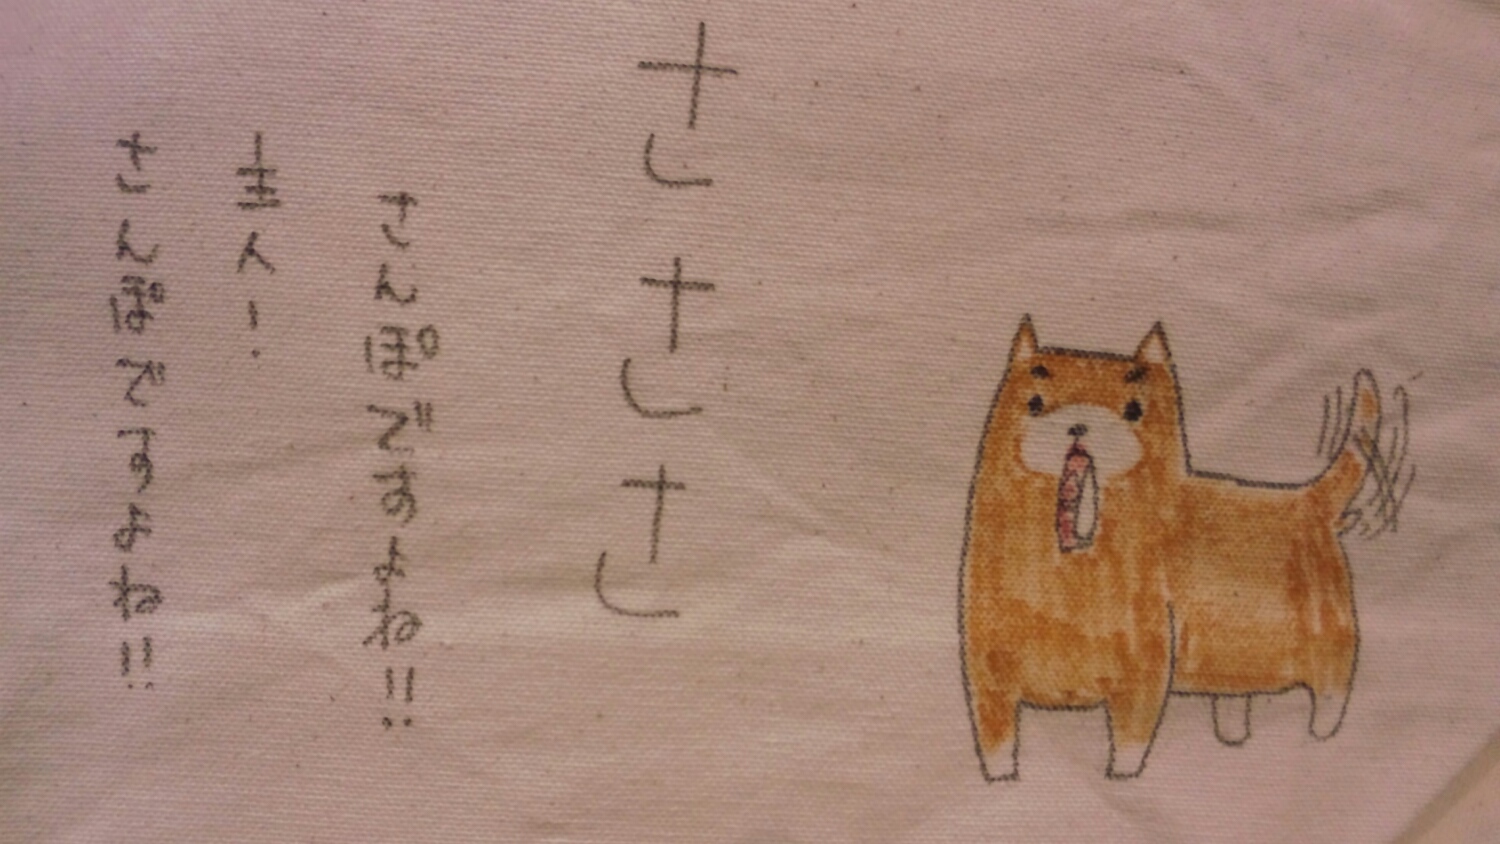 さささ
さんぽですよね!!
主人!
さんぽですよね!!